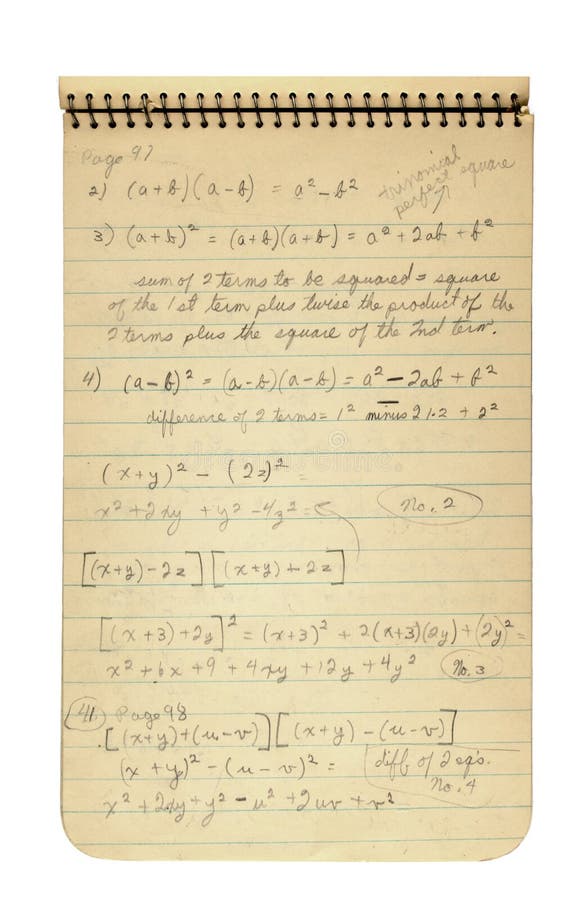 Page 97
2) (a+b)(a-b) = a² - b²
trinomial
perfect square
3) (a+b)² = (a+b)(a+b) = a² + 2ab + b²
sum of 2 terms to be squared = square
of the 1st term plus twise the product of the
2 terms plus the square of the 2nd term.
4) (a-b)² = (a-b)(a-b) = a² - 2ab + b²
difference of 2 terms = 1² minus 2 1·2 + 2²
(x+y)² - (2z)² =
x² + 2xy + y² - 4z² =
No. 2
[(x+y)-2z][(x+y)+2z]
[(x+3)+2y]² = (x+3)² + 2(x+3)(2y) + (2y)² =
x² + 6x + 9 + 4xy + 12y + 4y²
No. 3
41. Page 98
[(x+y)+(u-v)][(x+y)-(u-v)]
(x+y)² - (u-v)² =
diff of 2 eq's.
No. 4
x² + 2xy + y² - u² + 2uv + v²